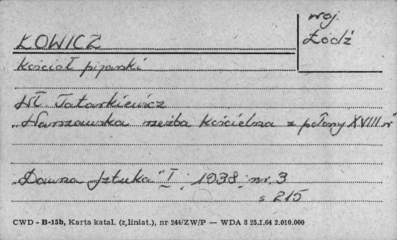 ŁOWICZ
woj.
Łódź
kościół pijarski
Wł. Tatarkiewicz
„Warszawska rzeźba kościelna z połowy XVIII w"
„Dawna Sztuka" I, 1938, nr. 3
s 215
CWD - B-15b, Karta katal. (z,liniat.), nr 244/ZW/P — WDA 8 25.I.64 2.010.000